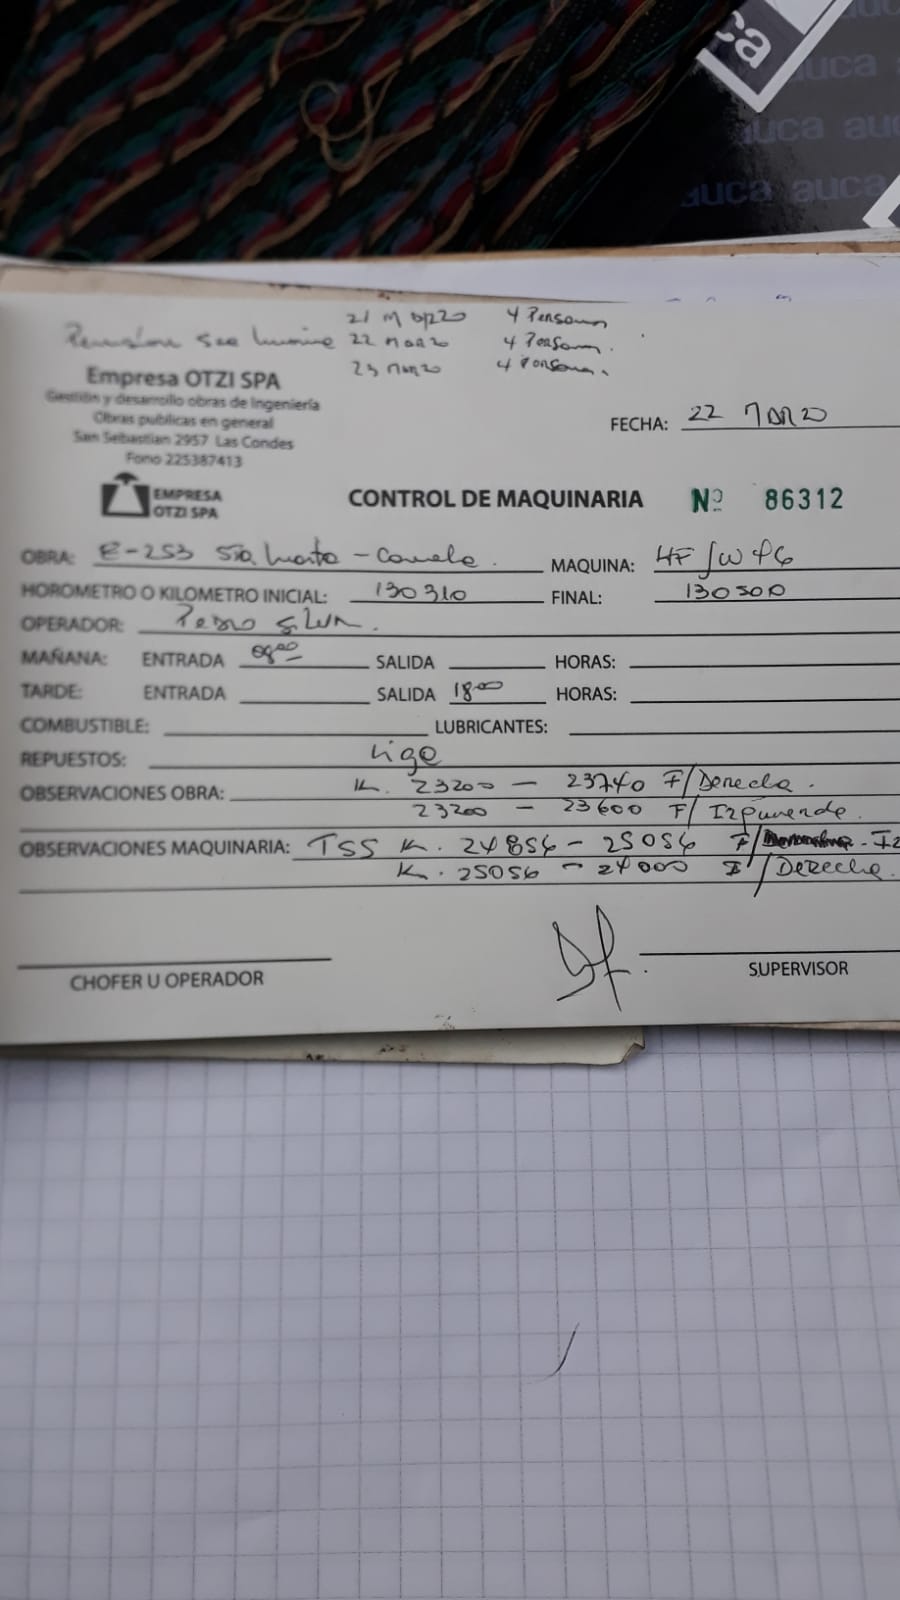 ca
auca
auca auca
auca auca
21 Marzo 4 Personas
Pension 22 Marzo 4 Personas.
23 Marzo 4 Personas.
Empresa OTZI SPA
Gestión y desarrollo obras de Ingeniería
Obras publicas en general
San Sebastian 2957 Las Condes
Fono 225387413
FECHA: 22 Marzo
EMPRESA
OTZI SPA
CONTROL DE MAQUINARIA Nº 86312
OBRA: E-253 - Canela. MAQUINA:
HOROMETRO O KILOMETRO INICIAL: 130310 FINAL: 130500
OPERADOR: Pedro Silva.
MAÑANA: ENTRADA 08:00 SALIDA HORAS:
TARDE: ENTRADA SALIDA 18:00 HORAS:
COMBUSTIBLE: LUBRICANTES:
REPUESTOS: Liga
OBSERVACIONES OBRA: K. 23200 - 23740 F/Derecha.
23200 - 23600 F/Izquierda.
OBSERVACIONES MAQUINARIA: TSS K. 24856 - 25056 F/ - Iz
K. 25056 - 24000 F/Derecha.
CHOFER U OPERADOR SUPERVISOR